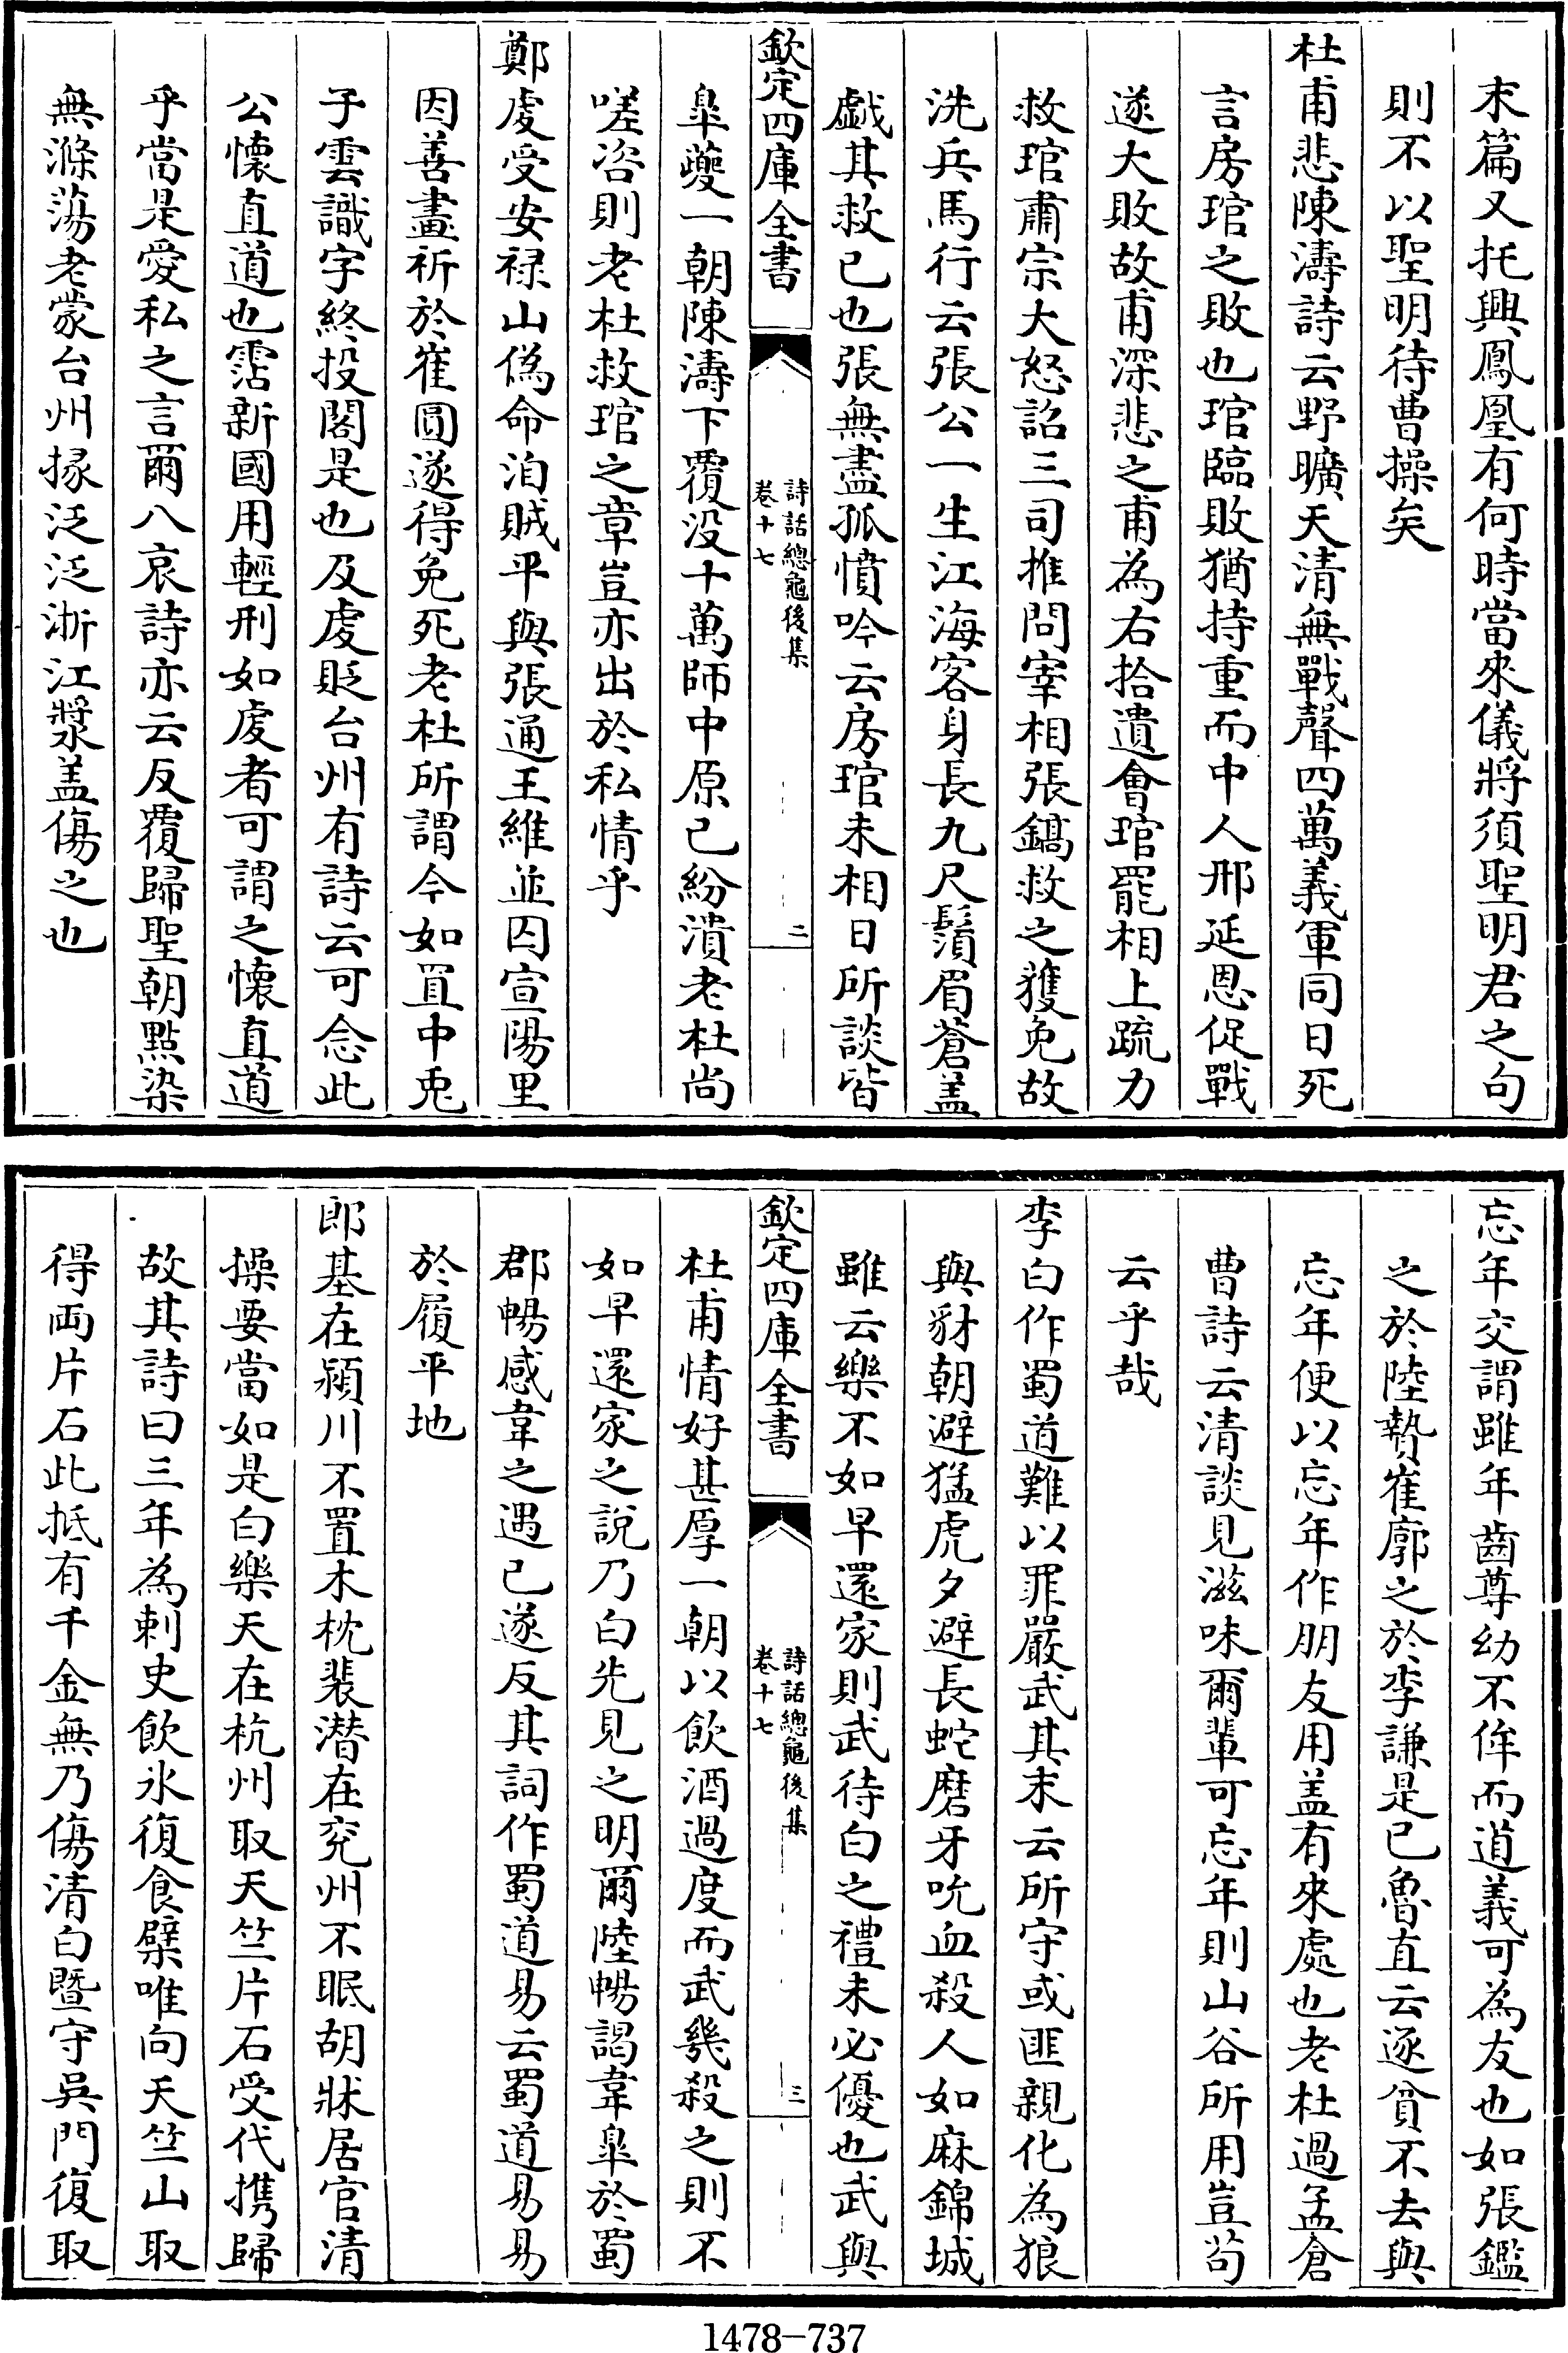 末篇又托興鳳凰有何時當來儀將須聖明君之句
則不以聖明待曹操矣
杜甫悲陳濤詩云野曠天清無戰聲四萬義軍同日死
言房琯之敗也琯臨敗猶持重而中人邢延恩促戰
遂大敗故甫深悲之甫為右拾遺會琯罷相上疏力
救琯肅宗大怒詔三司推問宰相張鎬救之獲免故
洗兵馬行云張公一生江海客身長九尺鬚眉蒼蓋
戲其救已也張無盡孤憤吟云房琯未相日所談皆
欽定四庫全書
詩話總龜後集
卷十七
二
臯夔一朝陳濤下覆没十萬師中原已紛潰老杜尚
嗟咨則老杜救琯之章豈亦出於私情乎
鄭虔受安禄山偽命洎賊平與張通王維並囚宣陽里
因善畫祈於崔圓遂得免死老杜所謂今如罝中兎
子雲識字終投閣是也及虔貶台州有詩云可念此
公懷直道也霑新國用輕刑如虔者可謂之懷直道
乎當是愛私之言爾八哀詩亦云反覆歸聖朝點染
無滌蕩老蒙台州掾泛泛浙江漿盖傷之也
忘年交謂雖年齒尊幼不侔而道義可為友也如張鑑
之於陸贄崔廓之於李謙是已魯直云逐貧不去與
忘年便以忘年作朋友用盖有來處也老杜過孟倉
曹詩云清談見滋味爾輩可忘年則山谷所用豈茍
云乎哉
李白作蜀道難以罪嚴武其末云所守或匪親化為狼
與豺朝避猛虎夕避長蛇磨牙吮血殺人如麻錦城
雖云樂不如早還家則武待白之禮未必優也武與
欽定四庫全書
詩話總龜後集
卷十七
三
杜甫情好甚厚一朝以飲酒過度而武幾殺之則不
如早還家之說乃白先見之明爾陸暢謁韋臯於蜀
郡暢感韋之遇已遂反其詞作蜀道易云蜀道易易
於履平地
郎基在潁川不置木枕裴潜在兖州不眠胡牀居官清
操要當如是白樂天在杭州取天竺片石受代携歸
故其詩曰三年為刺史飲氷復食檗唯向天竺山取
得両片石此抵有千金無乃傷清白暨守吳門復取
1478-737